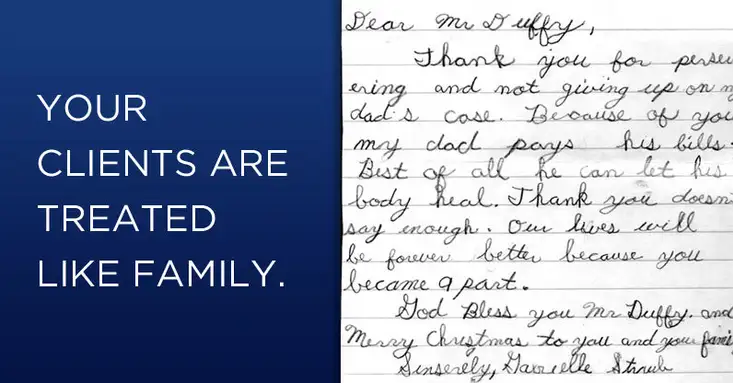 YOUR
CLIENTS ARE
TREATED
LIKE FAMILY.
Dear Mr Duffy,
Thank you for persev
ering and not giving up on m
dad's case. Because of you
my dad pays his bills.
Best of all he can let his
body heal. Thank you doesn
say enough. Our lives will
be forever better because you
became a part.
God Bless you Mr Duffy. and
Merry Christmas to you and your fami
Sinserely,